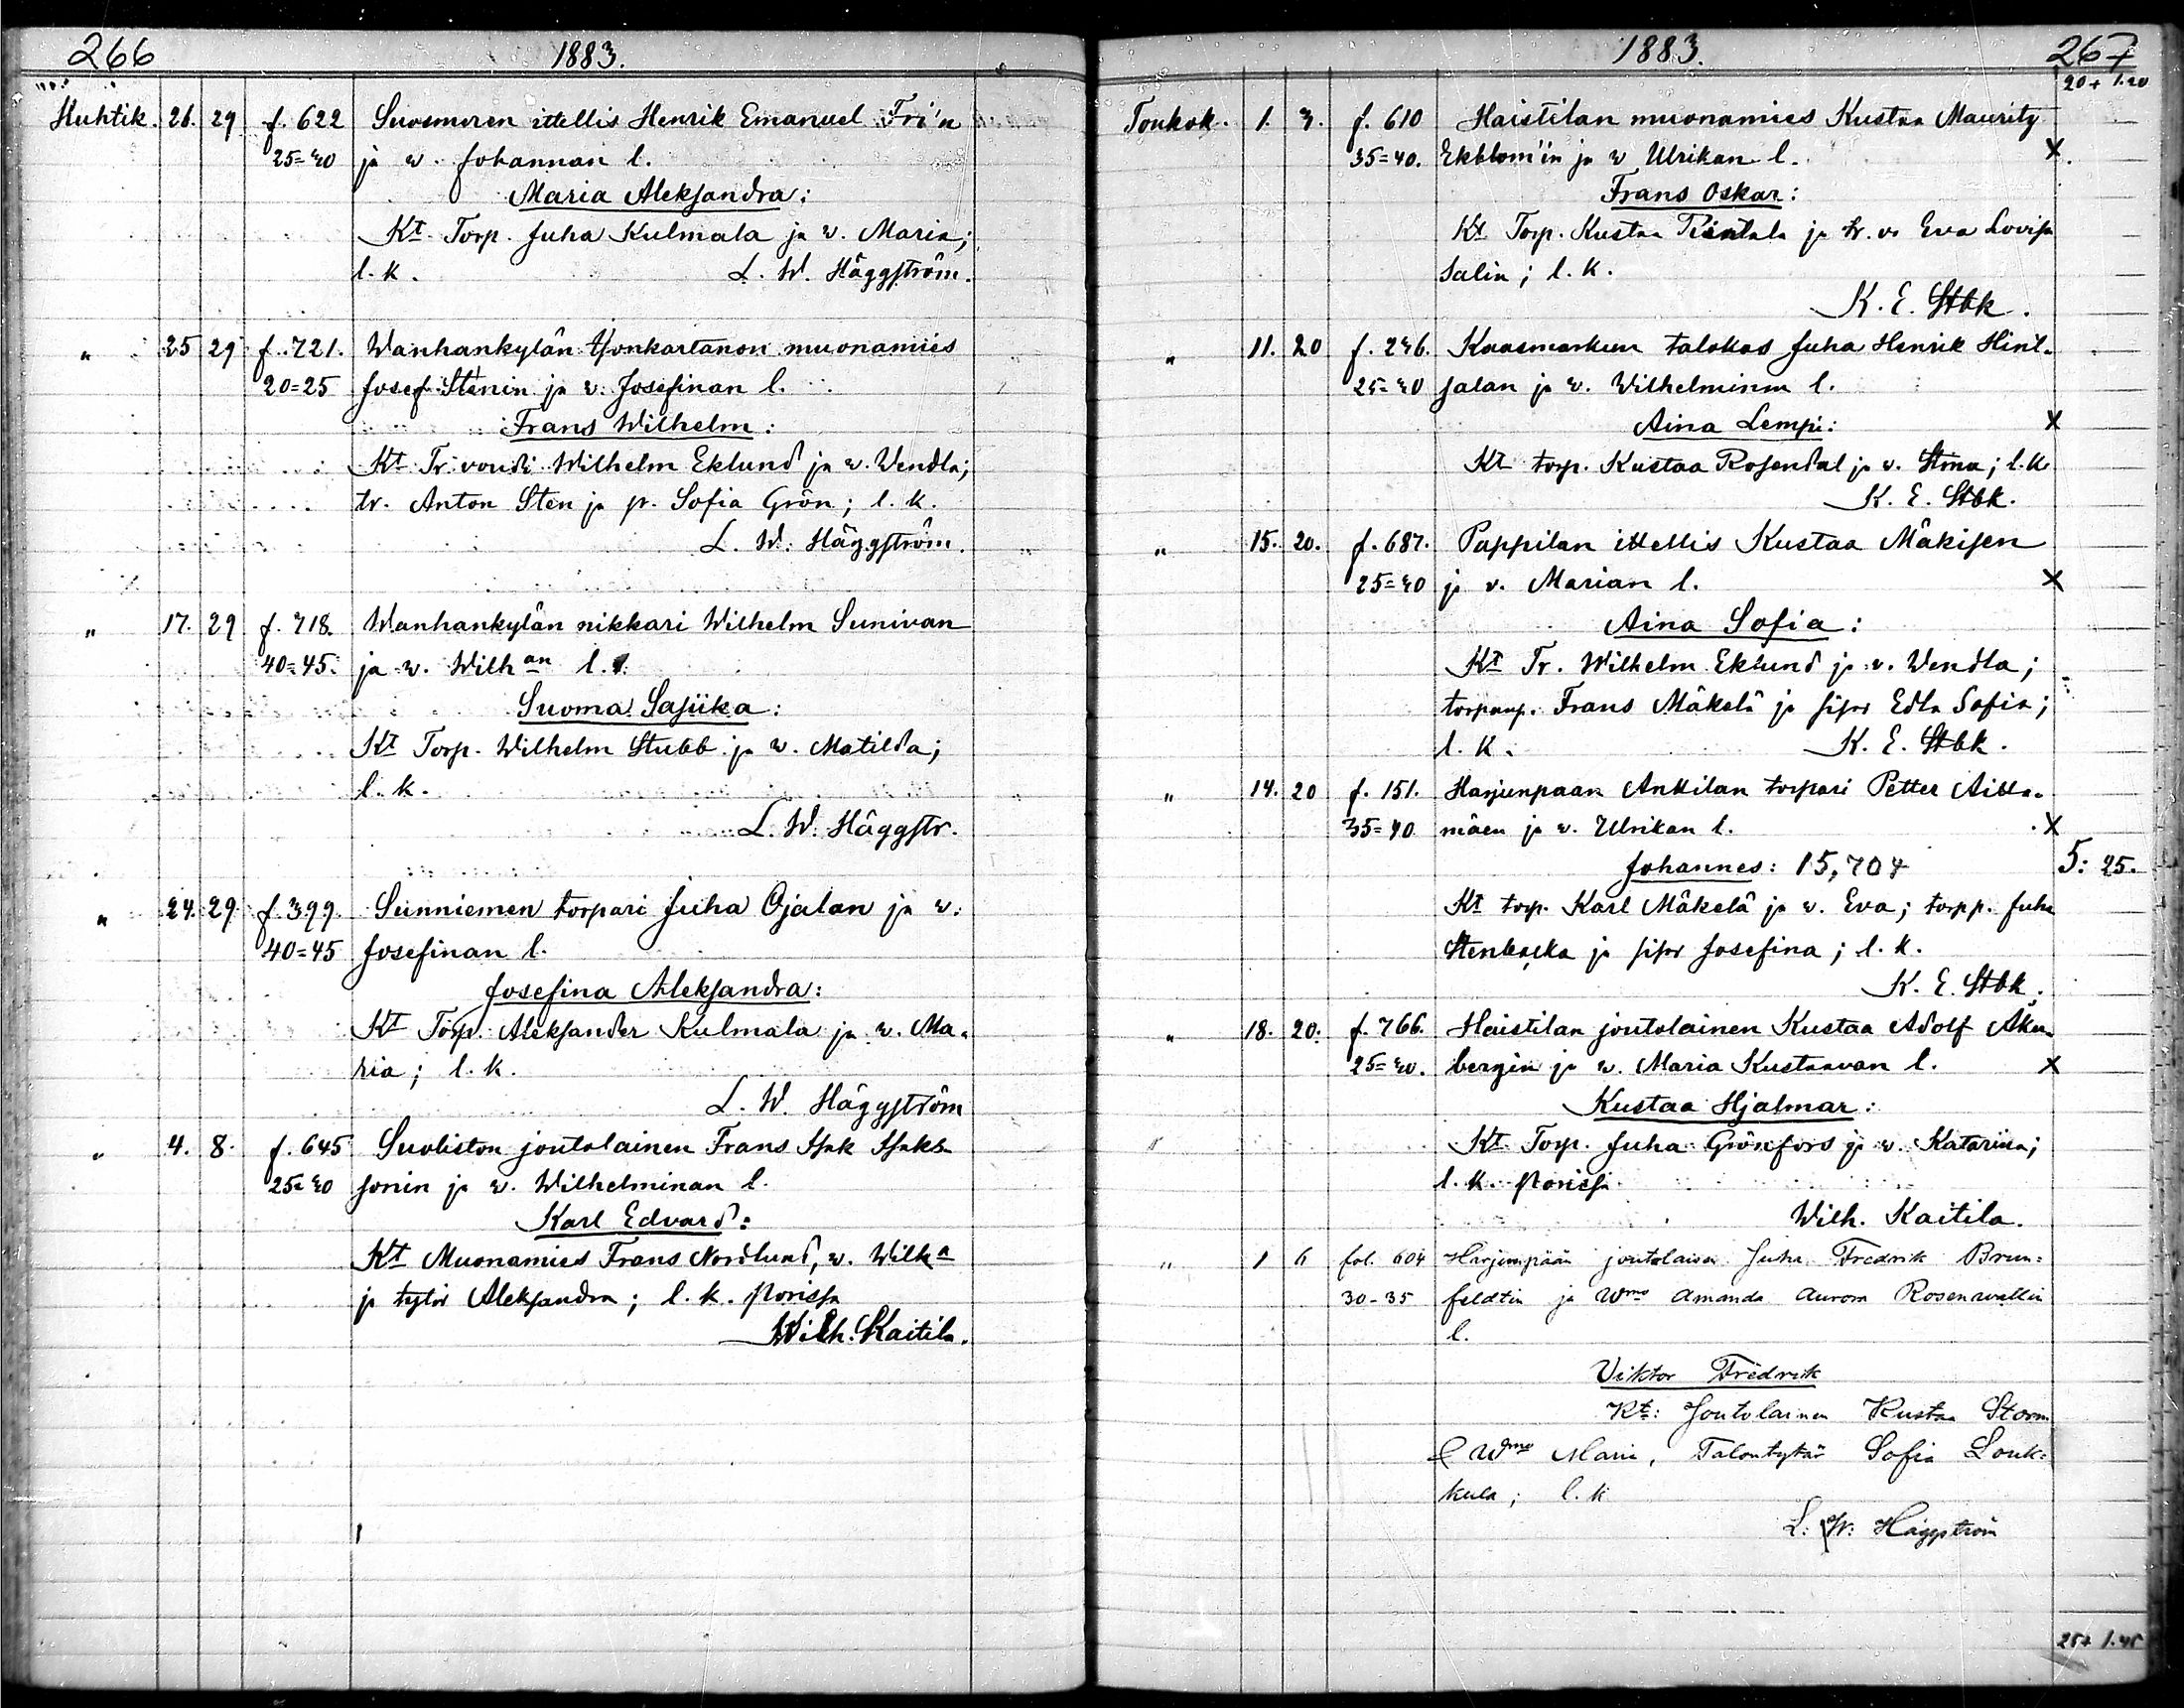 266
1883.
Huhtik. 26. 29 f. 622 Suosmeren ittellis Henrik Emanuel Fri'n
25=40 ja w. Johannan l.
Maria Aleksandra:
Kt Torp. Juha Kulmala ja w. Maria;
l. k. L. W. Häggström.
" 25 29 f. 721. Wanhankylän Hovikartanon muonamies
20=25 Josef Stenin ja w. Josefinan l.
Frans Wilhelm:
Kt Tr. vouti Wilhelm Eklund ja w. Wendla;
tr. Anton Sten ja p. Sofia Grön; l. k.
L. W. Häggström.
" 17. 29 f. 718. Wanhankylän nikkari Wilhelm Sunivan
40=45. ja w. Wilhan l.
Suoma Sasiika:
Kt Torp. Wilhelm Stubb ja w. Matilda;
l. k.
L. W. Häggstr.
" 24. 29 f. 399. Sunniemen torpari Juha Ojalan ja w.
40=45 Josefinan l.
Josefina Aleksandra:
Kt Torp. Aleksander Kulmala ja w. Ma-
ria; l. k.
L. W. Häggström
" 4. 8. f. 645 Suoliston joutolainen Frans Isak Isaks-
25=40 sonin ja w. Wilhelminan l.
Karl Edvard:
Kt Muonamies Frans Nordlund, w. Wilha
ja tytör Aleksandra; l. k. Porissa
Wilh. Kaitila.
1883.
267
20+ 1.20
Toukok. 1. 3. f. 610 Haistilan muonamies Kustaa Mauritz
35=40. Ekblom'in ja w Ulrikan l. X.
Frans Oskar:
Kt Torp. Kustaa Rintala ja tr. v. Eva Lovisa
Salin; l. k.
K. E. Stbk.
" 11. 20 f. 246. Kaasmarkun talokas Juha Henrik Hint-
25=40 salan ja w. Wilhelminan l.
Aina Lempi: X
Kt torp. Kustaa Rosendal ja v. Stina; l. k.
K. E. Stbk.
" 15. 20. f. 687. Pappilan ittellis Kustaa Mäkisen
25=40 ja v. Marian l. X
Aina Sofia:
Kt Tr. Wilhelm Eklund ja v. Wendla;
torpanp. Frans Mäkelä ja sisar Edla Sofia;
l. k. K. E. Stbk.
" 14. 20 f. 151. Harjunpään Anttilan torpari Petter Aitta-
35=40 mäen ja w. Ulrikan l. X
Johannes: 15,704 5: 25.
Kt torp. Karl Mäkelä ja w. Eva; torpp. Juha
Stenbacka ja sisar Josefina; l. k.
K. E. Stbk.
" 18. 20. f. 766. Haistilan joutolainen Kustaa Adolf Åker-
25=40. bergin ja w. Maria Kustaavan l. X
Kustaa Hjalmar:
" Kt Torp. Juha Grönfors ja w. Katariina;
l. k. Porissa
Wilh. Kaitila.
" 1 6 fol. 604 Harjunpään joutolaisen Juha Fredrik Brun=
30-35 feldtin ja Wmo Amanda Aurora Rosenwallin
l.
Viktor Fredrik
Kt: Joutolainen Kustaa Storm
& Wmo Maria, Talontytär Sofia Louk=
kula; l. k
L: W: Häggström
25+ 1.45